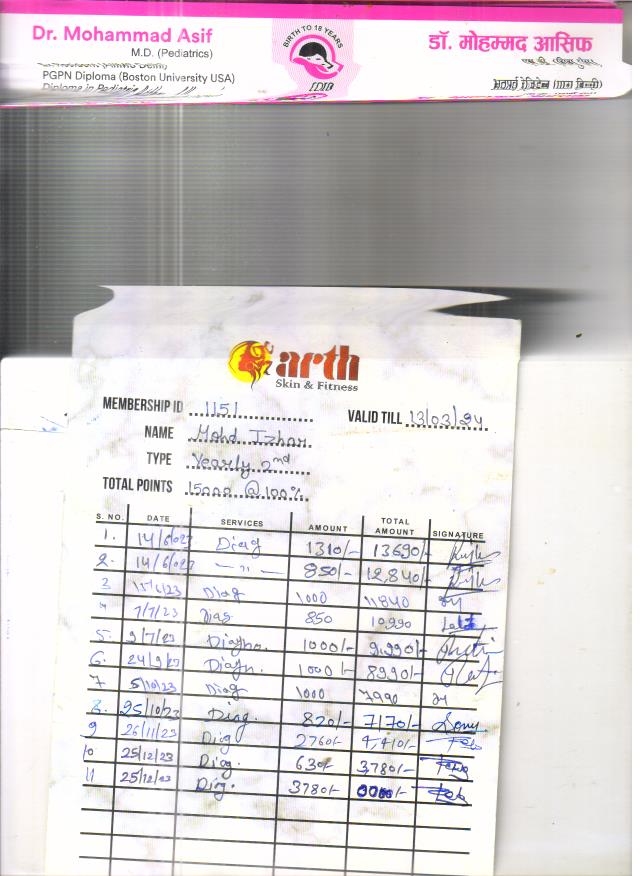 Dr. Mohammad Asif
M.D. (Pediatrics)
PGPN Diploma (Boston University USA)
Diploma in
BIRTH TO 18 YEARS
डॉ. मोहम्मद आसिफ
arth
Skin & Fitness
MEMBERSHIP ID 1151 VALID TILL 13/03/24
NAME Mohd Izhar
TYPE Yearly 2nd
TOTAL POINTS 15000 @ 100%
S. NO. DATE SERVICES AMOUNT TOTAL AMOUNT SIGNATURE
1. 14/6/023 Diag 1310/- 13690/-
2. 14/6/023 — 11 — 850/- 12,840/-
3 15/6/23 Diag 1000 11840
7/7/23 Diag 850 10990
5. 9/7/23 Diagno. 1000/- 9,990/-
6. 24/9/23 Diagn. 1000/- 8990/-
7 5/10/23 Diag 1000 7990
8. 25/10/23 Diag. 820/- 7,170/- Sonu
9 26/11/23 Diag 2760/- 4,410/-
10 25/12/23 Diag. 630/- 3,780/-
11 25/12/23 Diag. 3780/- 0000/-